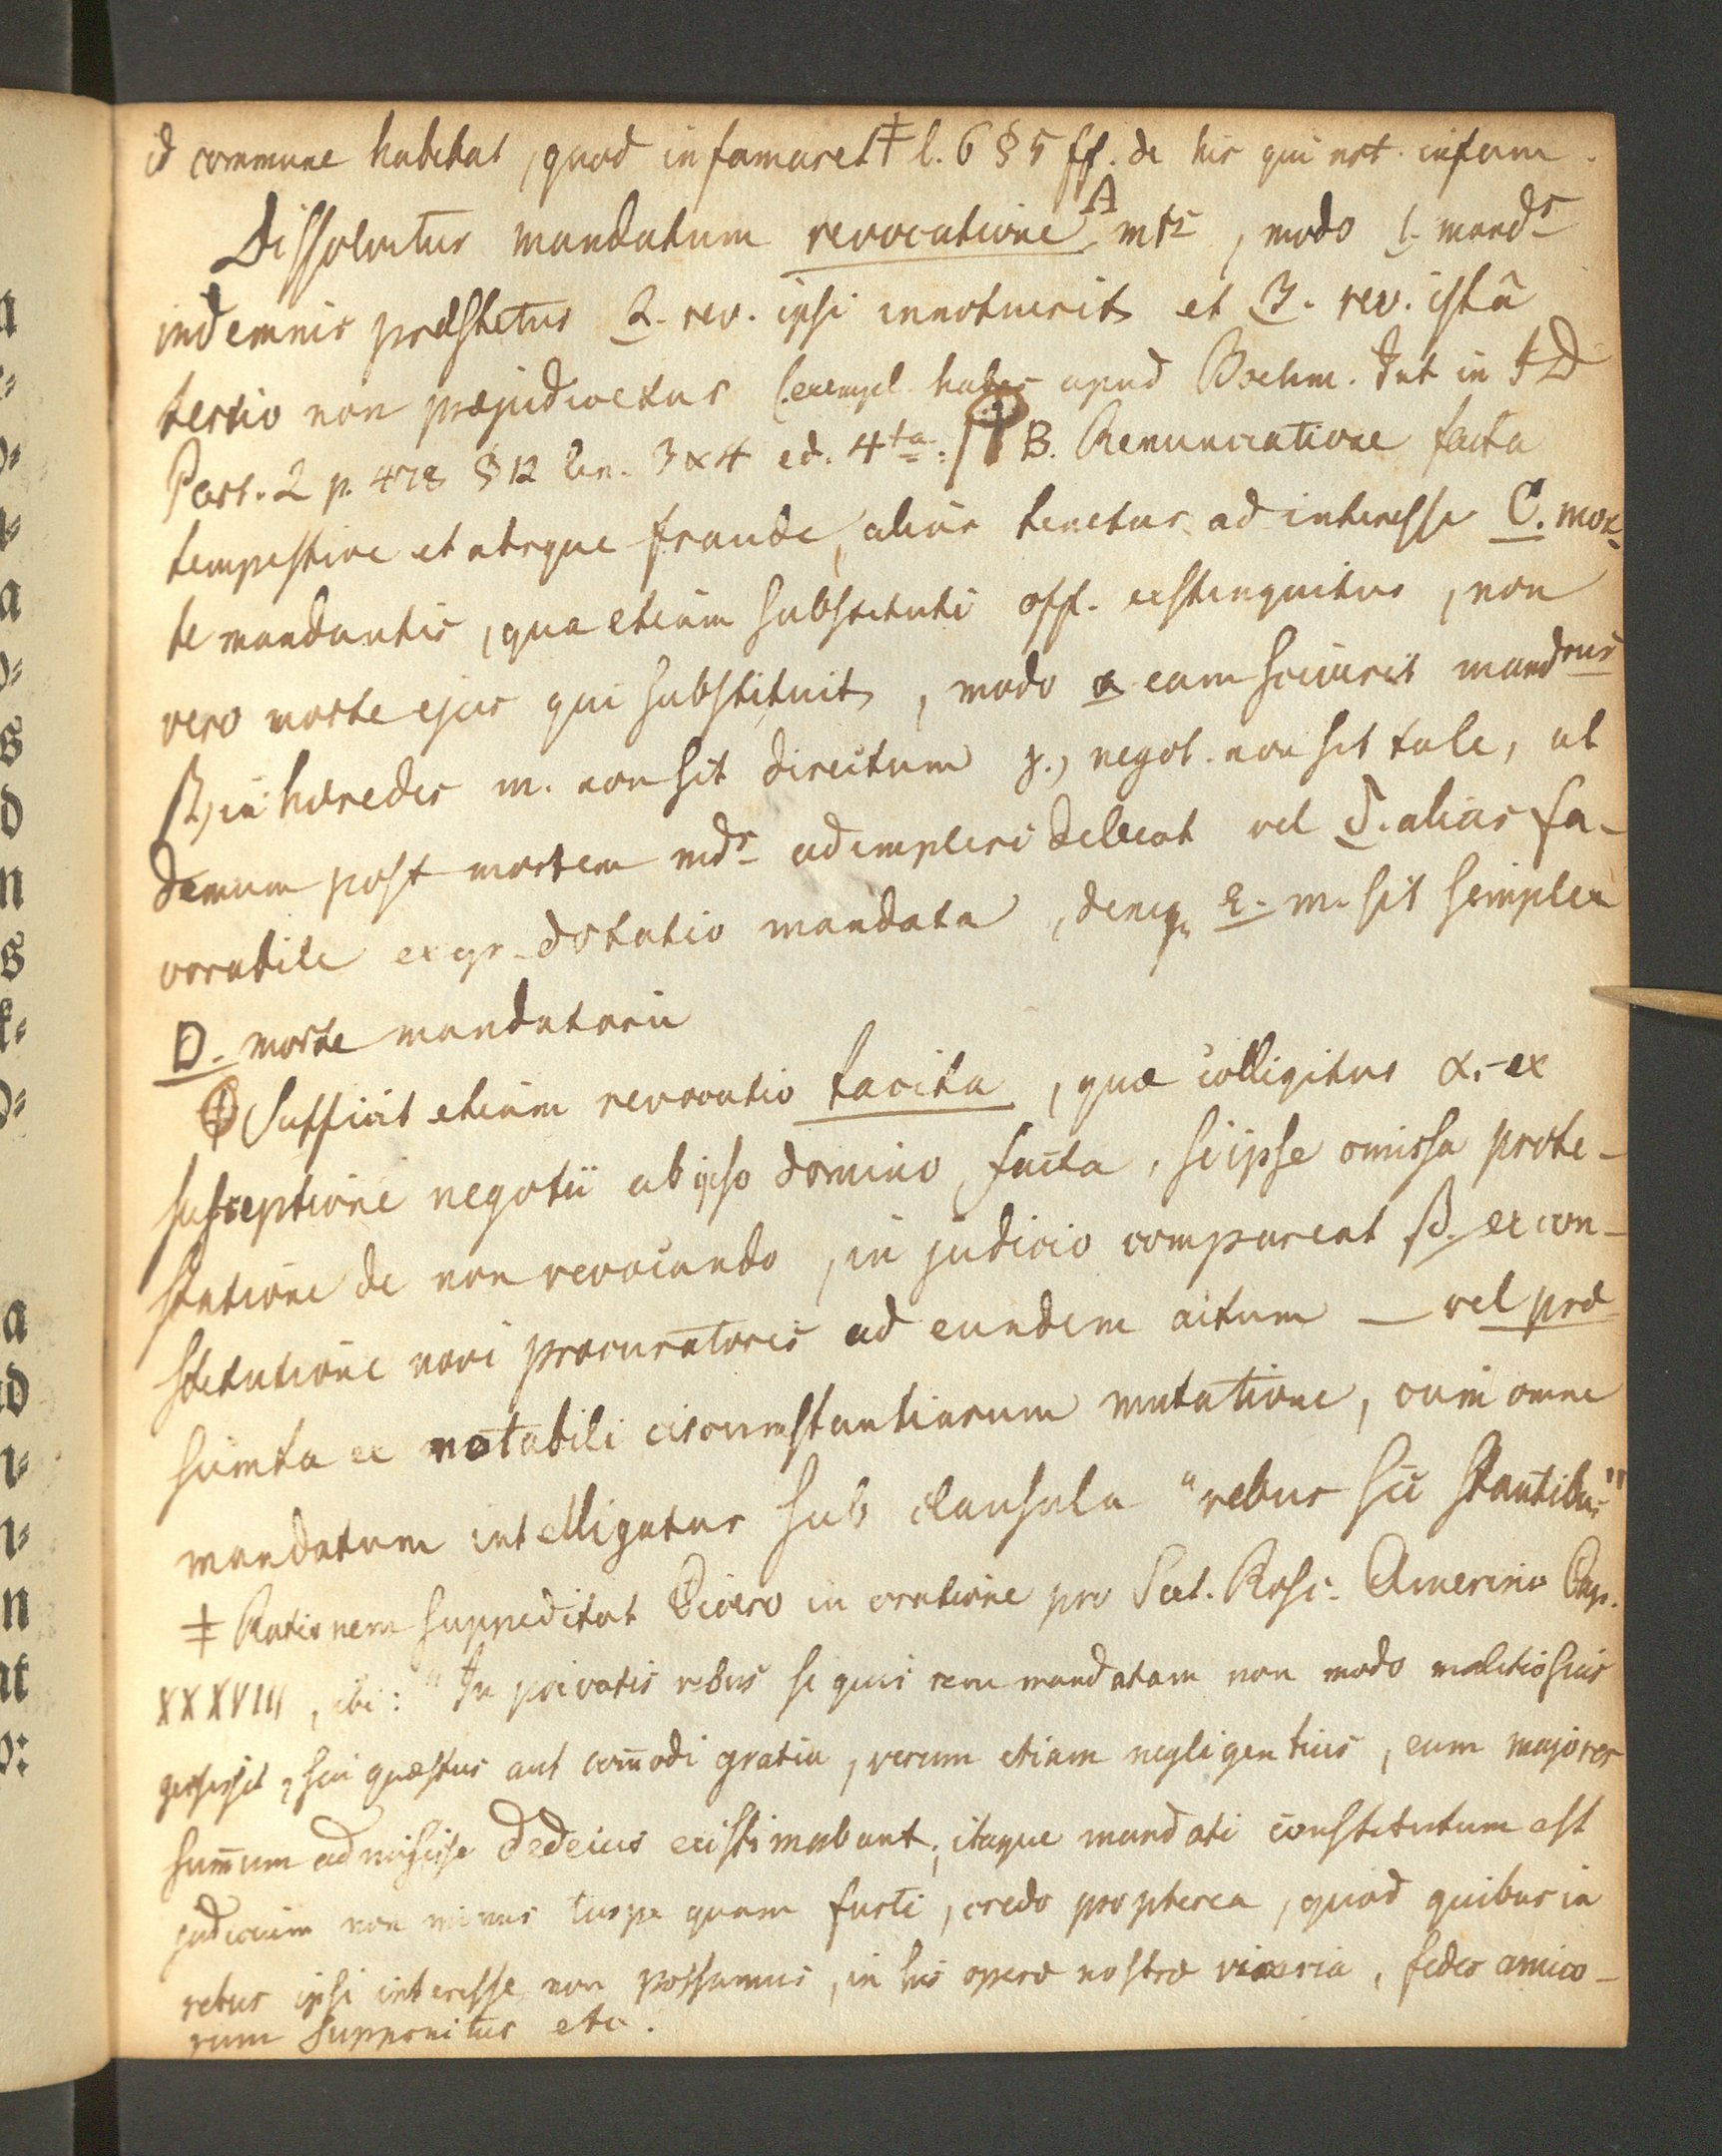 id commune habebat, quod infamaret ‡ l. 6 § 5 ff. de his qui not. infam.
Dissolvitur mandatum revocatione A mts, modo 1. mands
indemnis præstetur 2. rev. ipsi innotuerit et 3. rev. istâ
tertio non præjudicetur (exempl. habes apud Boehm. Int in ID
Part. 2 p. 478 § 12 lin. 3 & 4 ed. 4ta: B. Renunciatione facta
tempestive et absque fraude, alias tenetur ad interesse C. mor-
te mandantis, qua etiam substituti off. exstinguitur, non
vero morte ejus qui substituit, modo α eam sciverit mandrius
β, in hæredes m. non sit directum γ., negot. non sit tale, ut
demum post mortem mds adimpleri debeat vel δ. alias fa-
vorabile ex gr. dotatio mandata, denique ε. m. sit simplex
D. morte mandatarii
Sufficit etiam revocatio tacita, quæ colligitur α. ex
susceptione negotii ab ipso domino facta, si ipse omissa prote-
statione de non revocando, in judicio compareat β. ex con-
stitutione novi procuratoris ad eundem actum — vel præ
sumta ex notabili circumstantiarum mutatione, cum omne
mandatum intelligatur sub clausula "rebus sic stantibus"
‡ Rationem suppeditat Cicero in oratione pro Sext. Rosc. Amerino Cap.
XXXVIII, ibi: "In privatis rebus si quis rem mandatam non modo malitiosius
gessisset, sui quæstus aut com̄odi gratia, verum etiam negligentius, eum majores
sum̄um admisisse dedecus existimabant; itaque mandati constitutum est
judicium non minus turpe quam furti, credo propterea, quod quibus in
rebus ipsi interesse non possumus, in his operæ nostræ vicaria, fides amico-
rum supponitur etc.